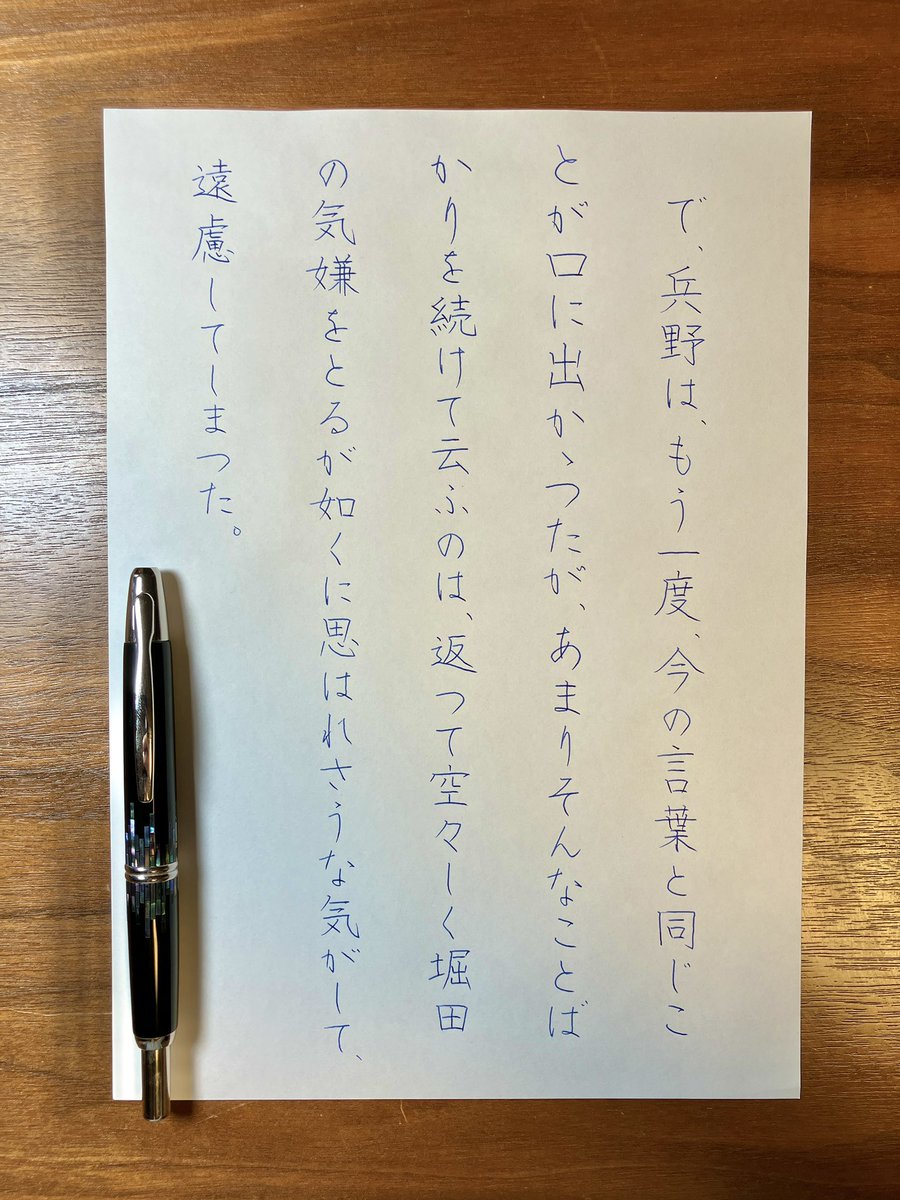 で、兵野は、もう一度、今の言葉と同じこ
とが口に出かゝつたが、あまりそんなことば
かりを続けて云ふのは、返つて空々しく堀田
の気嫌をとるが如くに思はれさうな気がして、
遠慮してしまつた。